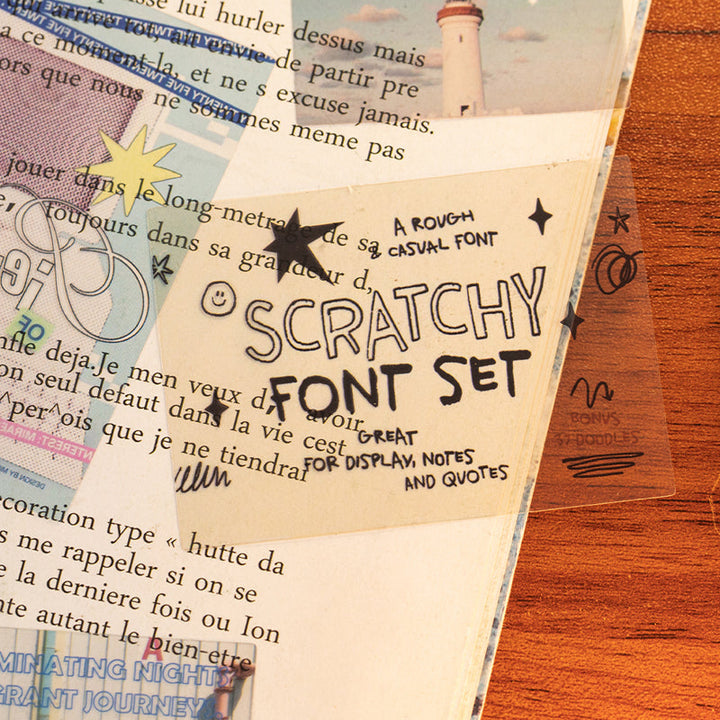 sse lui hurler dessus mais
qui arrive toi ait envie de partir pre
a ce moment-la, et ne s excuse jamais.
ors que nous ne sommes meme pas
TWENTY FIVE TWENTY FIVE
jouer dans le long-metrage de sa
toujours dans sa grandeur d,
A ROUGH
& CASUAL FONT
SCRATCHY
FONT SET
GREAT
FOR DISPLAY, NOTES
AND QUOTES
BONUS
37 DOODLES
OF
nfle deja.Je men veux d, avoir
on seul defaut dans la vie cest
^per^ois que je ne tiendrai
INTEREST: MIRA
DESIGN BY MI
ecoration type « hutte da
s me rappeler si on se
e la derniere fois ou Ion
nte autant le bien-etre
A
MINATING NIGHT
GRANT JOURNEY